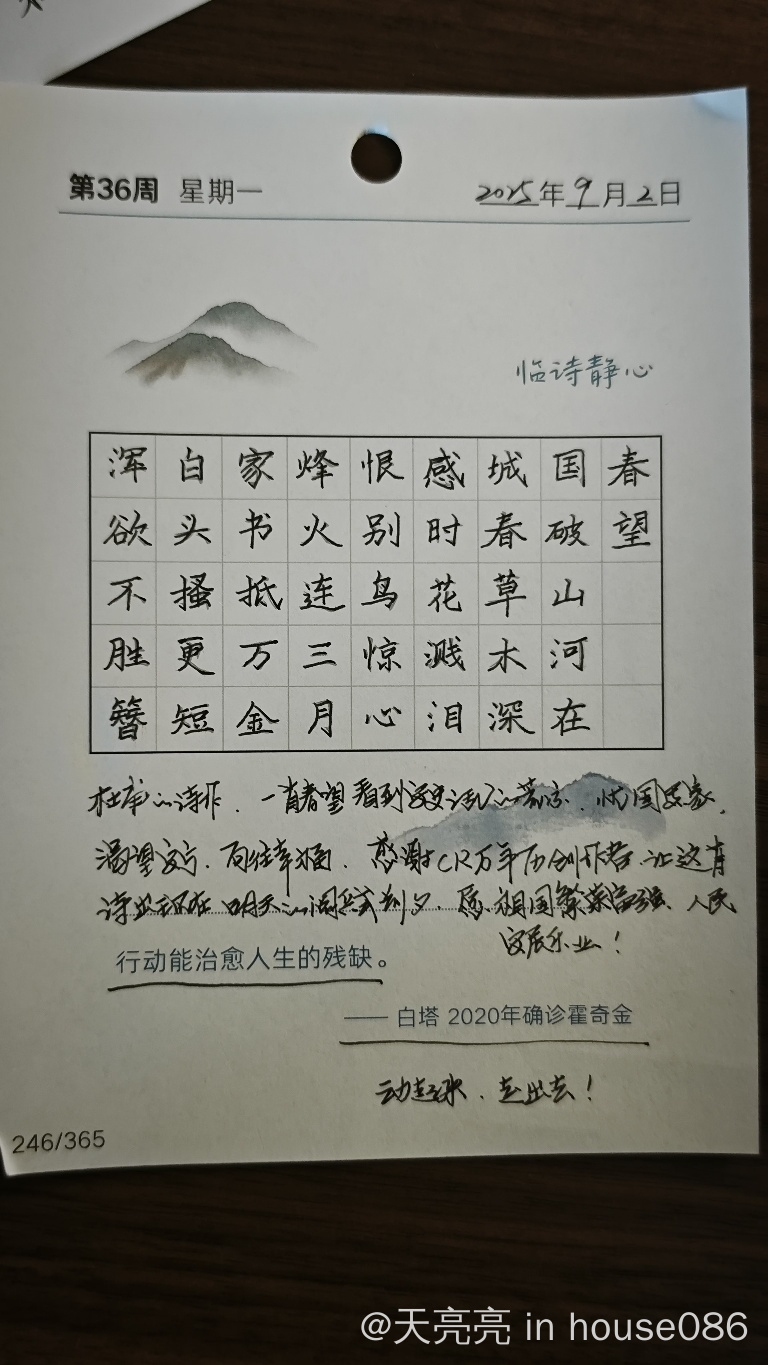 第36周 星期一
2025年9月2日
临诗静心
春望
国破山河在
城春草木深
感时花溅泪
恨别鸟惊心
烽火连三月
家书抵万金
白头搔更短
浑欲不胜簪
杜甫的诗作,一首春望看到历史的荒凉、忧国思家,
渴望安宁、向往幸福、感谢CR万年历创作者让这首
诗出现在明天的阅兵式前夕,愿祖国繁荣富强、人民
安居乐业!
行动能治愈人生的残缺。
—— 白塔 2020年确诊霍奇金
动起来、走出去!
246/365
@天亮亮 in house086